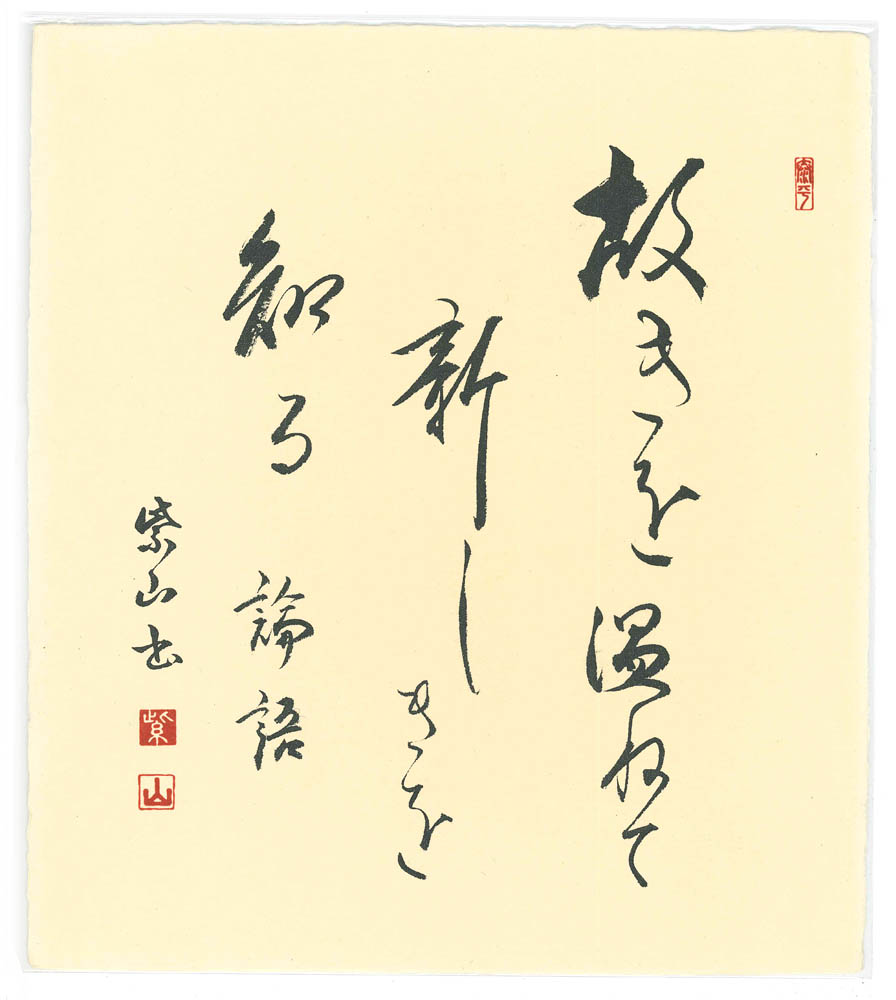 故きを温ねて
新しきを
知る 論語
紫山書
紫
山